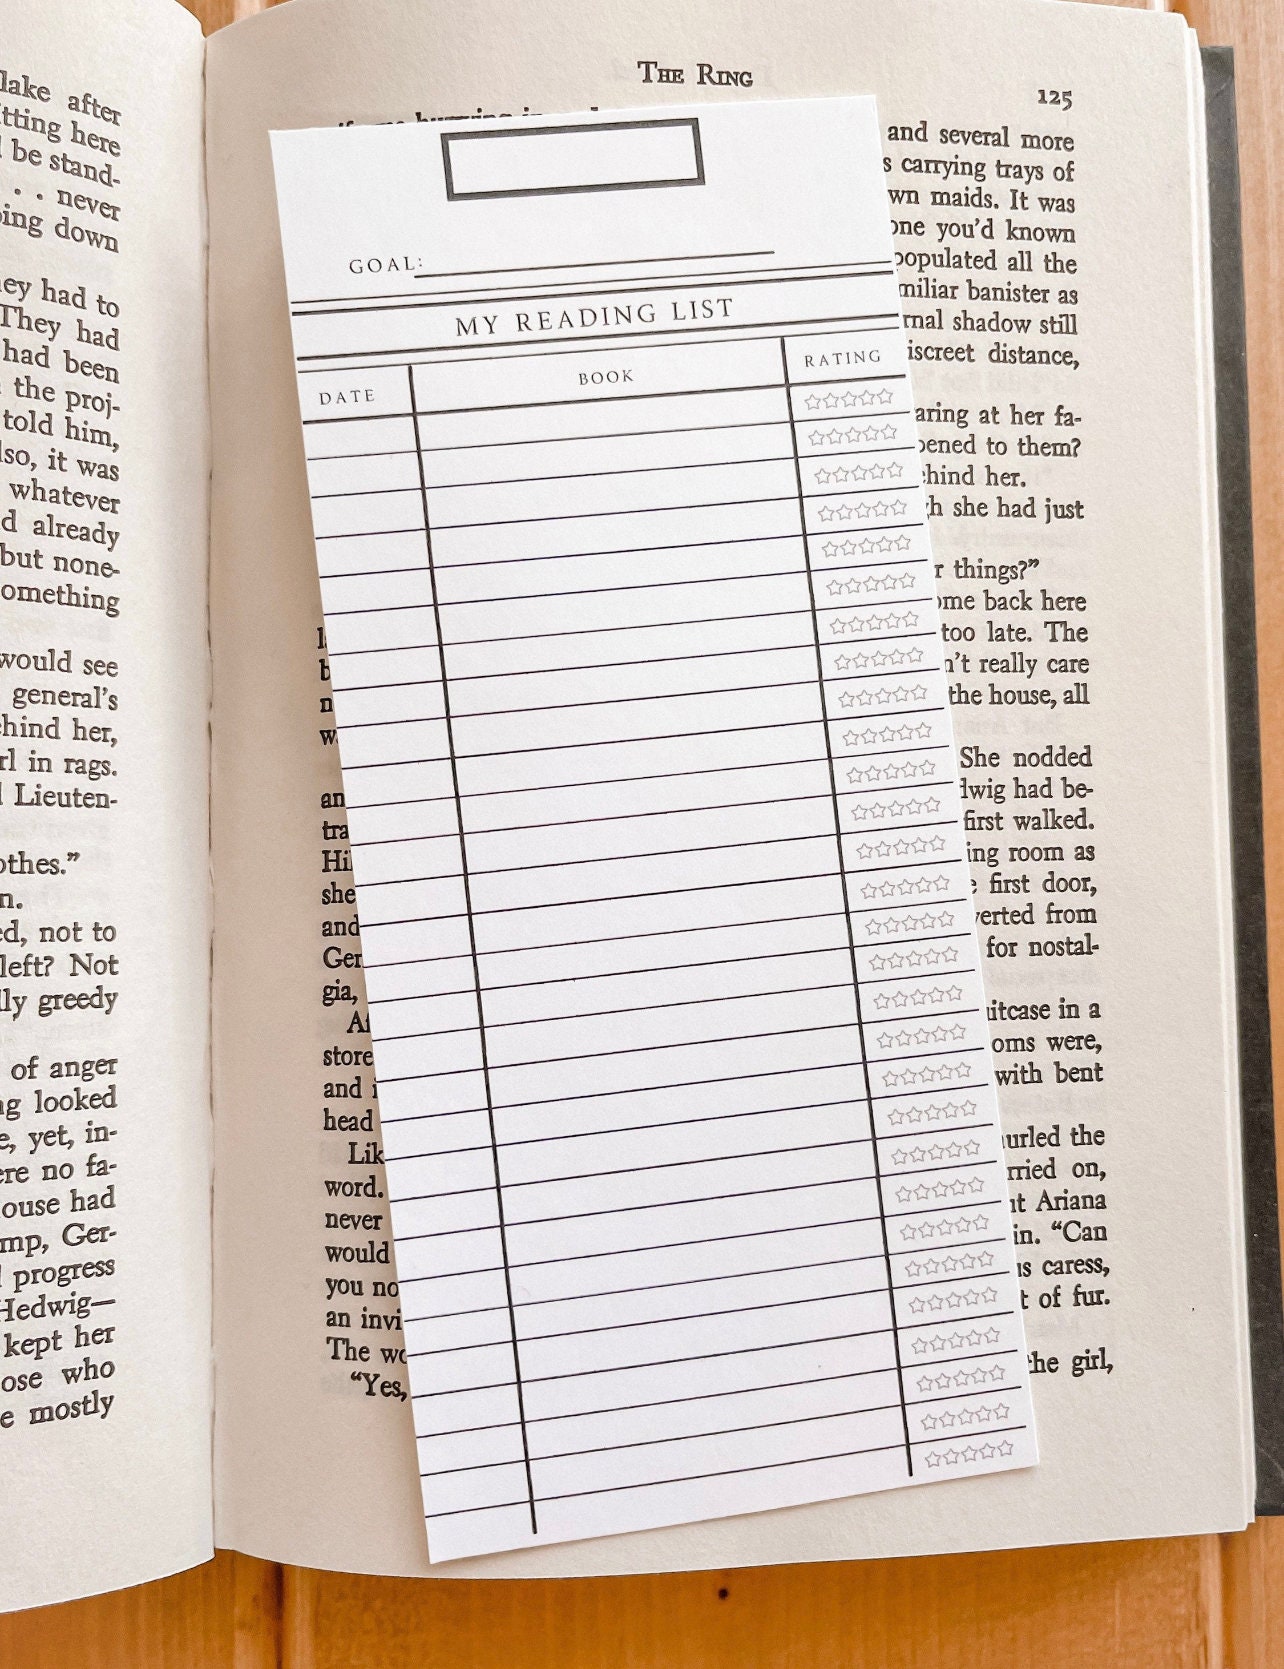 lake after
itting here
be stand-
. . never
ing down
ey had to
They had
had been
the proj-
told him,
lso, it was
whatever
d already
but none-
omething
would see
general's
hind her,
rl in rags.
Lieuten-
othes.”
n.
ed, not to
left? Not
lly greedy
of anger
ng looked
e, yet, in-
ere no fa-
ouse had
mp, Ger-
progress
Hedwig—
kept her
ose who
e mostly
The Ring
125
GOAL:
MY READING LIST
DATE BOOK RATING
and several more
s carrying trays of
wn maids. It was
one you'd known
populated all the
miliar banister as
rnal shadow still
iscreet distance,
aring at her fa-
pened to them?
hind her.
h she had just
r things?”
ome back here
too late. The
n't really care
the house, all
She nodded
dwig had be-
first walked.
ing room as
first door,
verted from
for nostal-
uitcase in a
oms were,
with bent
urled the
rried on,
ut Ariana
in. “Can
us caress,
t of fur.
the girl,
an
tra
Hil
she
and
Ger
gia,
Af
store
and i
head
Lik
word.
never
would
you no
an invi
The wo
“Yes,